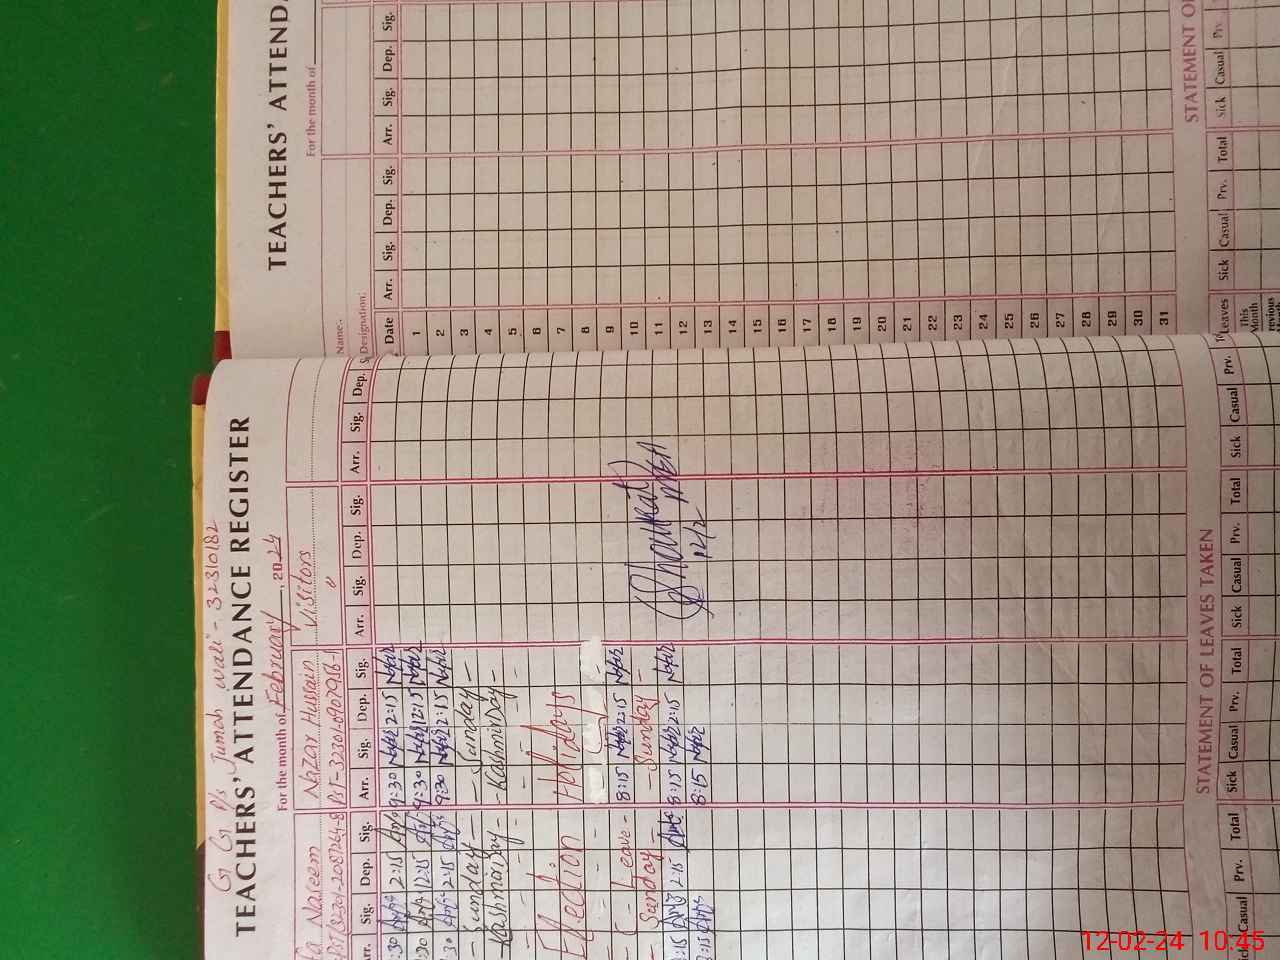 G G P/S Jumah wali - 32310182
TEACHERS' ATTENDANCE REGISTER
For the month of February, 2024
Naseem
Nazar Hussain
Visitors
Arr. Sig. Dep. Sig. Arr. Sig. Dep. Sig. Arr. Sig. Dep. Sig. Arr. Sig. Dep.
:30 2:15 9:30 2:15
:30 12:15 9:30 12:15
:30 2:15 9:30 2:15
- Sunday - - Sunday -
- Kashmir Day -
Election Holidays
- Leave - 8:15 2:15
- Sunday - - Sunday -
:15 2:15 8:15 2:15
:15 8:15
Shoukat
12/2 MEA
STATEMENT OF LEAVES TAKEN
Sick Casual Prv. Total Sick Casual Prv. Total Sick Casual Prv. Total Sick Casual Prv.
TEACHERS' ATTENDA
For the month of
Name:
Designation:
Date Arr. Sig. Dep. Sig. Arr. Sig. Dep. Sig.
1
2
3
4
5
6
7
8
9
10
11
12
13
14
15
16
17
18
19
20
21
22
23
24
25
26
27
28
29
30
31
STATEMENT OF
Leaves Sick Casual Prv. Total Sick Casual Prv.
This Month
previous
12-02-24 10:45